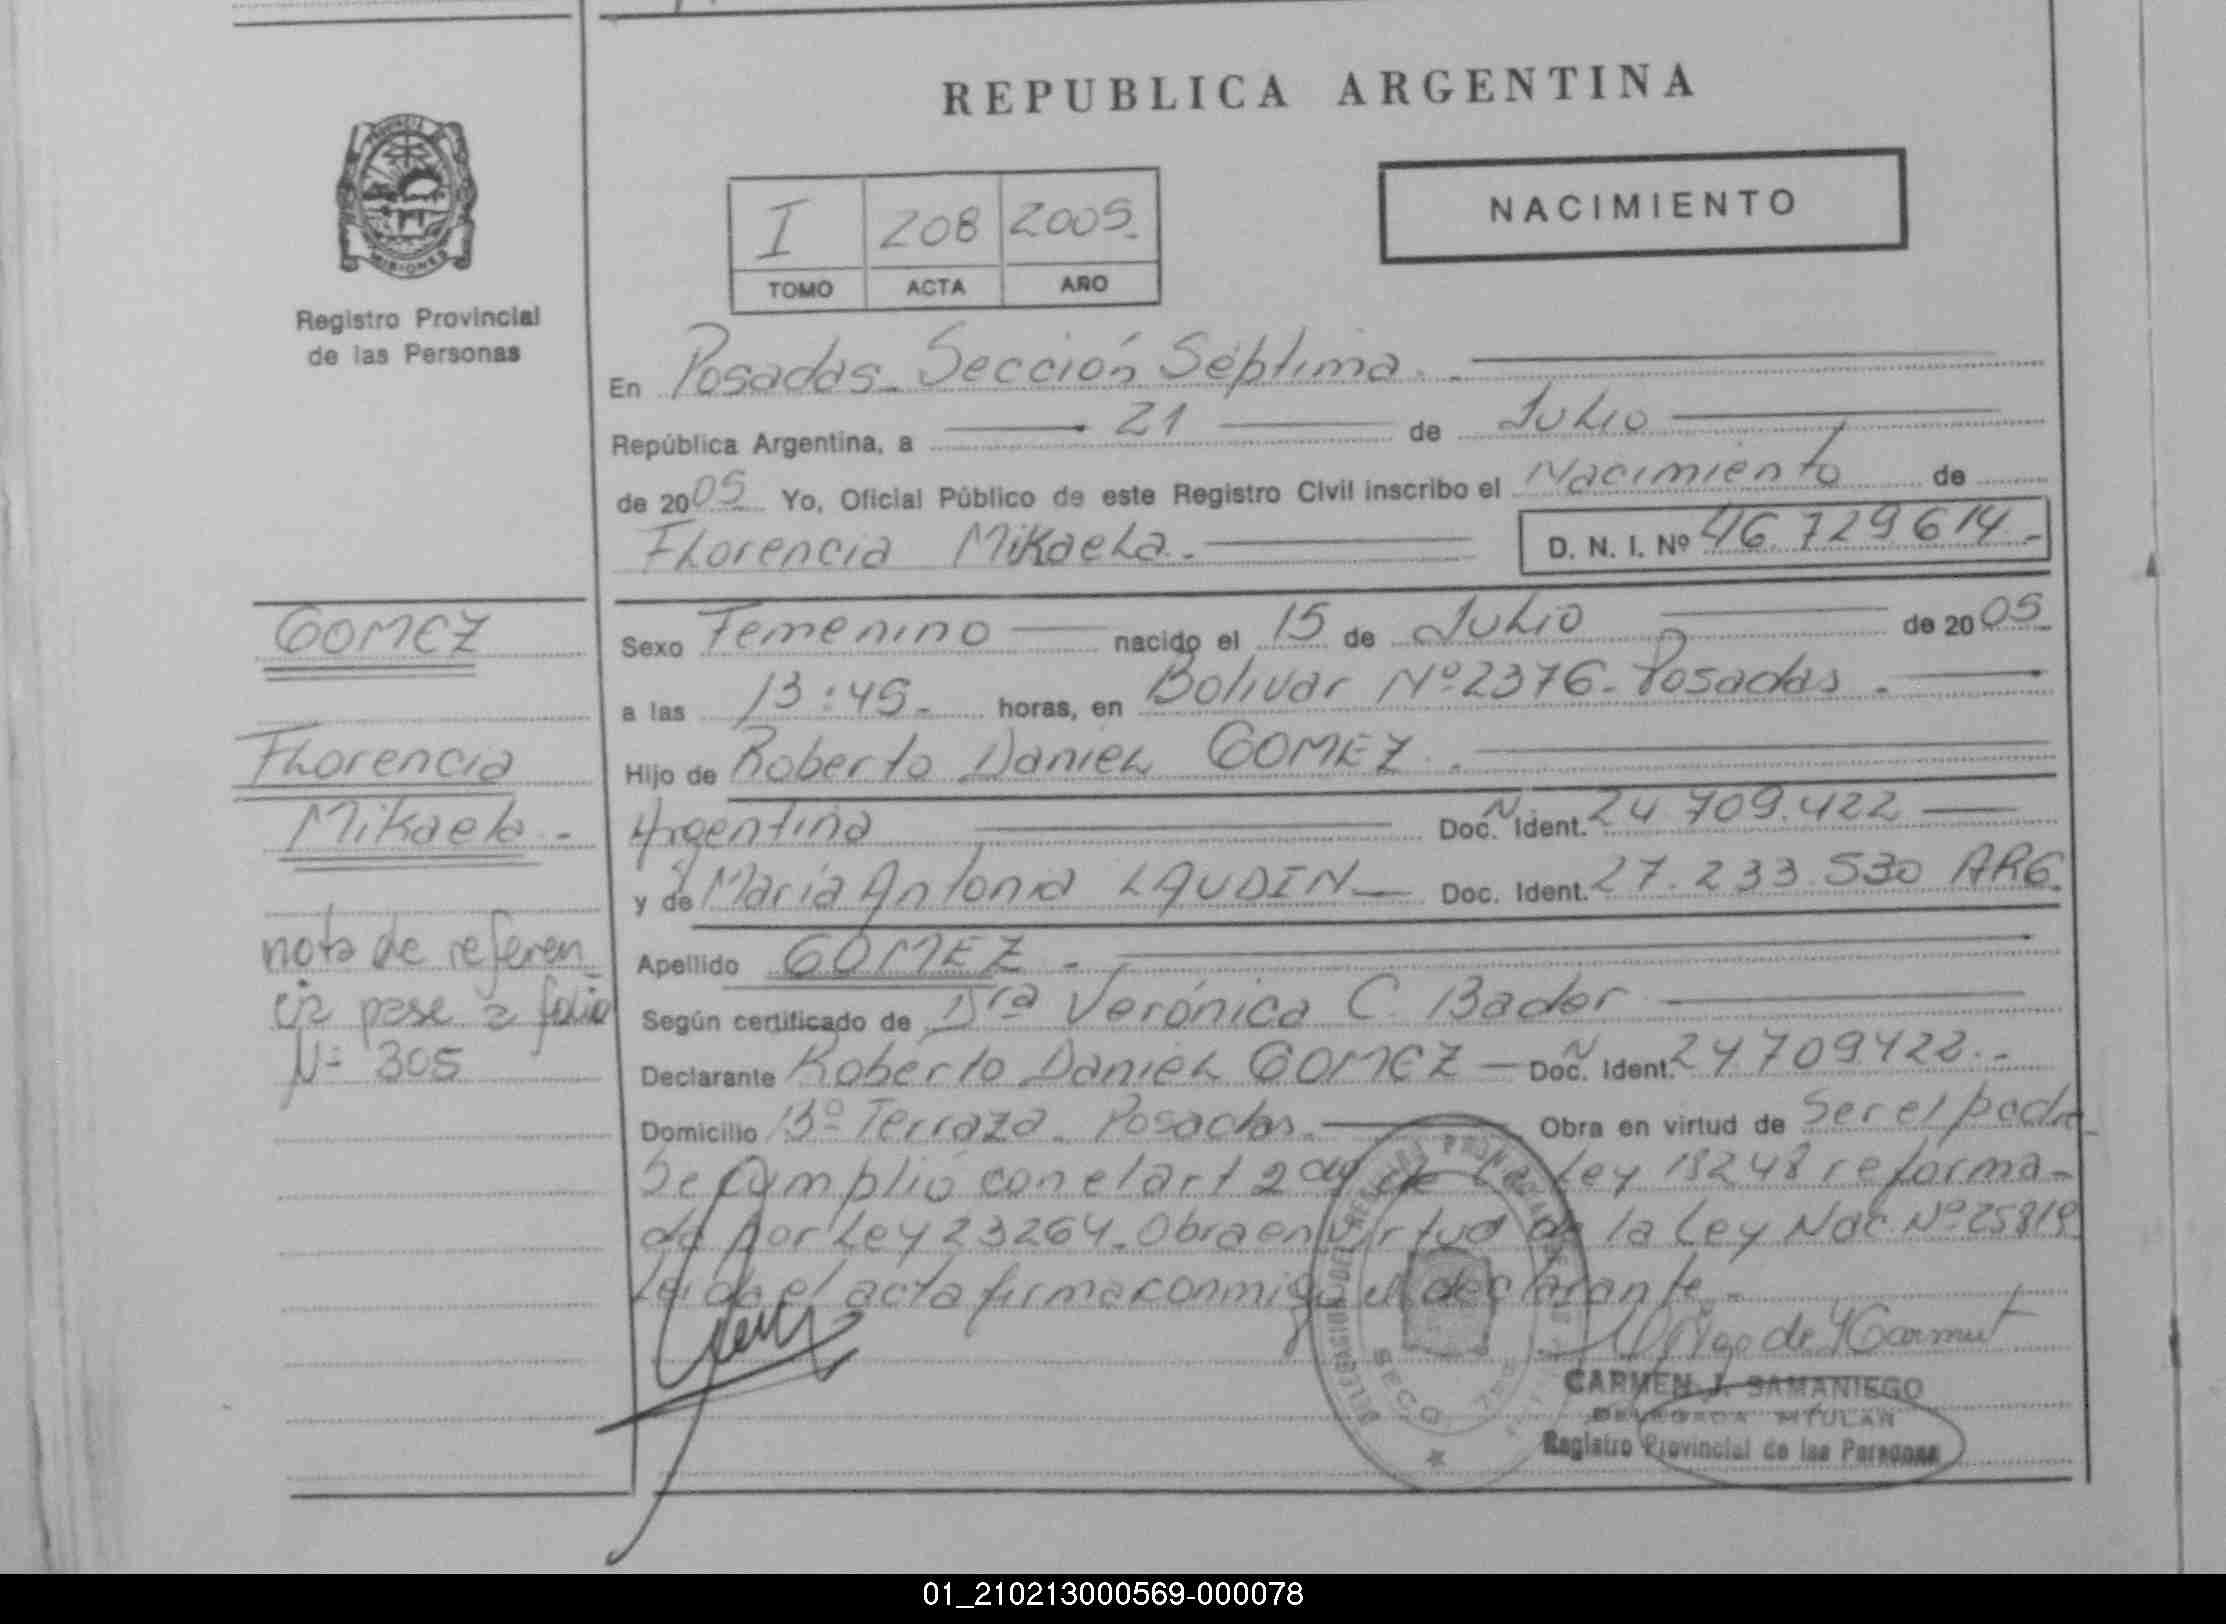 REPUBLICA ARGENTINA
PROVINCIA DE
MISIONES
Registro Provincial
de las Personas
I 208 2005.
TOMO ACTA AÑO
NACIMIENTO
En Posadas. Sección Séptima.
República Argentina, a 21 de Julio
de 2005 Yo, Oficial Público de este Registro Civil inscribo el Nacimiento de
Florencia Mikaela. D. N. I. Nº 46.729614.-
GOMEZ
Florencia
Mikaela.-
nota de referen
cia pase a folio
Nº 305
Sexo Femenino nacido el 15 de Julio de 2005.
a las 13:45. horas, en Bolivar Nº 2376. Posadas.
Hijo de Roberto Daniel GOMEZ.
Argentina Doc. Ident. 24.709.422
y de María Antonia LAUDIN Doc. Ident. 27.233.530 ARG.
Apellido GOMEZ.
Según certificado de Dra Verónica C. Bader
Declarante Roberto Daniel GOMEZ Doc. Ident. 24709422.-
Domicilio Bº Terraza. Posadas. Obra en virtud de Ser el padre
Se cumplió con el art 2 de la Ley 18248 reforma-
da por Ley 23264. Obra en virtud de la Ley Nac. Nº 25819
Leida el acta firma conmigo el declarante.-
CARMEN J. SAMANIEGO
DELEGADA TITULAR
Registro Provincial de las Personas
01_210213000569-000078